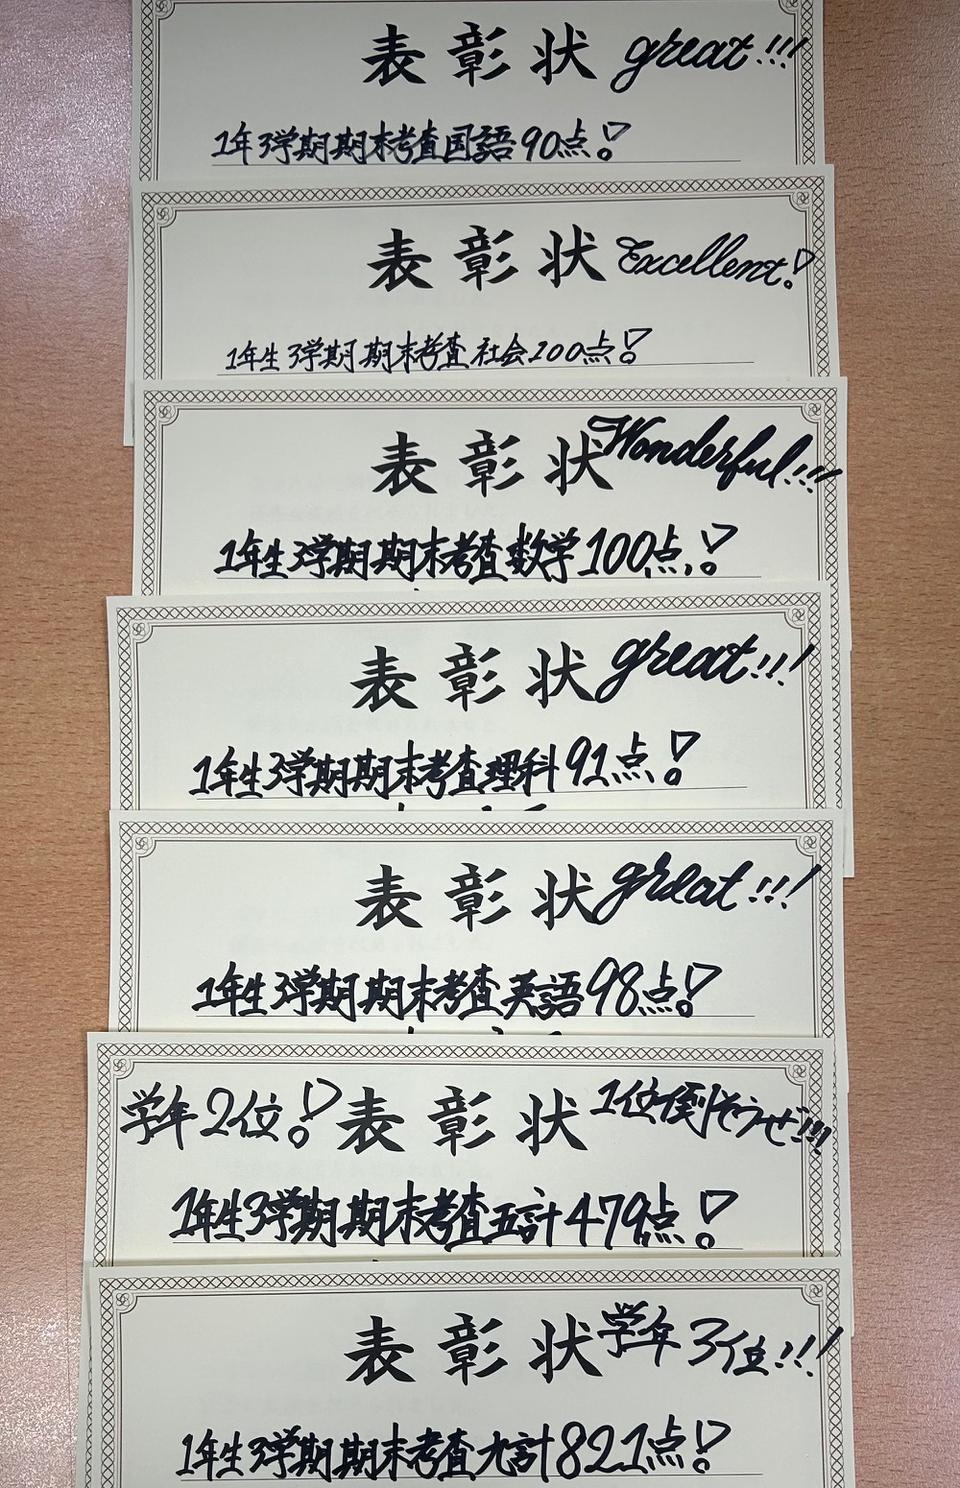 表彰状 great!!!
1年3学期期末考査国語90点!
表彰状 Excellent!
1年生3学期期末考査社会100点!
表彰状 Wonderful!!!
1年生3学期期末考査数学100点!
表彰状 great!!!
1年生3学期期末考査理科91点!
表彰状 great!!!
1年生3学期期末考査英語98点!
学年2位! 表彰状 1位倒そうぜ!!!
1年生3学期期末考査五計479点!
表彰状 学年3位!!!
1年生3学期期末考査九計821点!